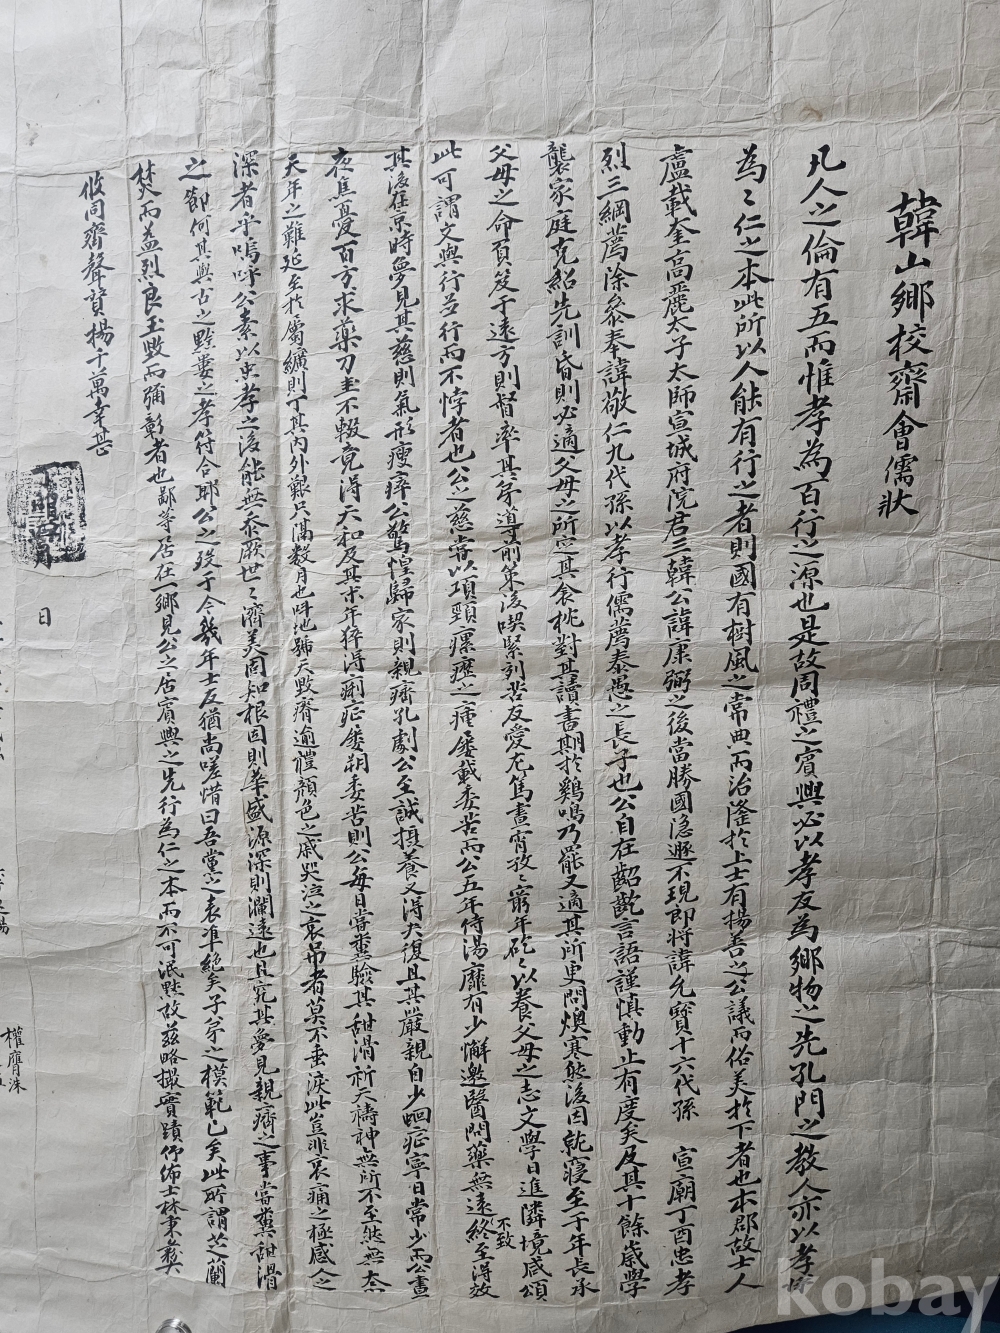 韓山鄉校齋會儒狀
凡人之倫有五而惟孝為百行之源也是故周禮之賓興必以孝友為鄉物之先孔門之教人亦以孝悌
為〻仁之本此所以人能有行之者則國有樹風之常典而治隆於上士有揚善之公議而俗美於下者也本郡故士人
盧載奎高麗太子太師宣城府院君三韓公諱康弼之後當勝國隐遯不現即將諱允寶十六代孫 宣廟丁酉忠孝
烈三綱薦除叅奉諱敬仁九代孫以孝行儒薦泰愚之長子也公自在齠齕言語謹慎動止有度矣及其十餘歲學
襲家庭克紹先訓昏則必適父母之所定其衾枕對其讀書期於鷄鳴乃罷又適其所更問燠寒然後因就寢至于年長承
父母之命負笈于遠方則督率其弟導前策後喫緊列苦友愛尤篤晝宵孜〻窮年矻〻以養父母之志文學日進隣境咸頌
此可謂文與行並行而不悖者也公之慈當以項頸瘰癧之瘇屢載委苦而公五年侍湯靡有少懈邀醫問藥無遠不致終至得效
其後在京時夢見其慈則氣形瘦瘁公驚惶歸家則親癠孔劇公至誠扶養又得夬復且其嚴親自少蛔症寧日常少而公晝
夜焦憂百方求藥刀圭不輟竟得天和及其末年猝得痢症屢朔委苦則公每日嘗糞驗其甜滑祈天禱神無所不至然無柰
天年之難延至於屬纊則丁其內外艱只隔數月也叫地號天毁瘠逾禮顏色之戚哭泣之哀吊者莫不垂淚此豈非哀痛之極感人之
深者乎嗚呼公素以忠孝之後能無忝厥世〻濟美固知根固則華盛源深則瀾遠也且究其夢見親癠之事嘗糞甜滑
之節何其與古之黔婁之孝符合耶公之歿于今幾年士友猶尚嗟惜曰吾黨之表準絶矣子弟之模範已矣此所謂芝蘭
焚而益烈良玉毁而彌彰者也鄙等居在一鄉見公之居賓興之先行為仁之本而不可泯默故玆略撮實蹟仰佈士林秉彛
攸同齊聲賛揚千萬幸甚
日
權膺洙